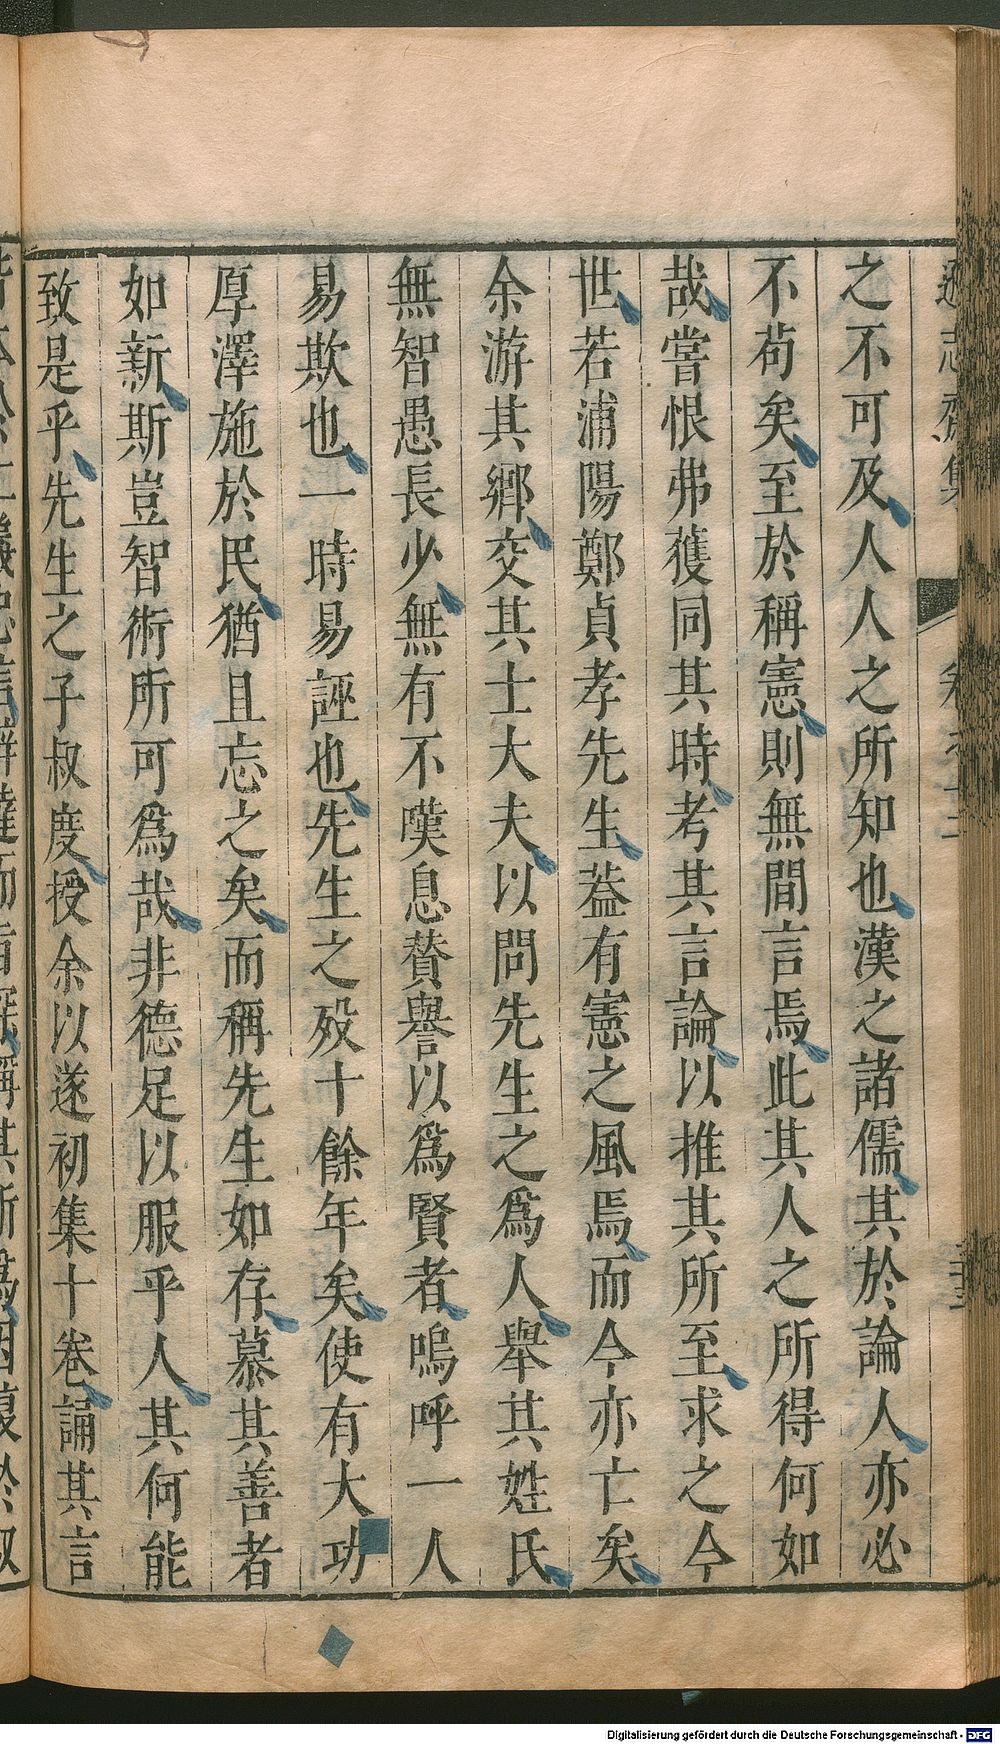 之不可及人人之所知也漢之諸儒其於論人亦必
不苟矣至於稱憲則無間言焉此其人之所得何如
哉嘗恨弗獲同其時考其言論以推其所至求之今
世若浦陽鄭貞孝先生葢有憲之風焉而今亦亡矣
余游其鄉交其士大夫以問先生之爲人舉其姓氏
無智愚長少無有不嘆息賛譽以爲賢者嗚呼一人
易欺也一時易誣也先生之殁十餘年矣使有大功
厚澤施於民猶且忘之矣而稱先生如存慕其善者
如新斯豈智術所可爲哉非德足以服乎人其何能
致是乎先生之子叔度授余以遂初集十卷誦其言
Digitalisierung gefördert durch die Deutsche Forschungsgemeinschaft - DFG